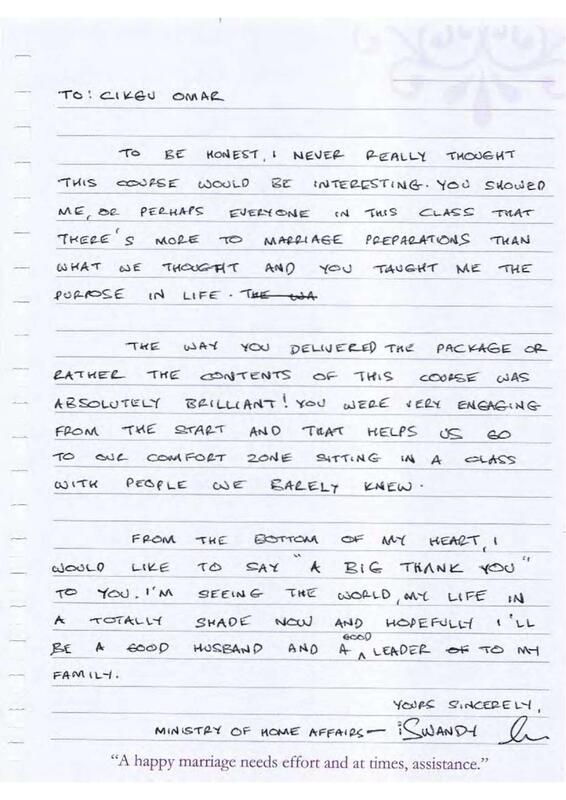 TO: CIKGU OMAR
TO BE HONEST, I NEVER REALLY THOUGHT
THIS COURSE WOULD BE INTERESTING. YOU SHOWED
ME, OR PERHAPS EVERYONE IN THIS CLASS THAT
THERE'S MORE TO MARRIAGE PREPARATIONS THAN
WHAT WE THOUGHT AND YOU TAUGHT ME THE
PURPOSE IN LIFE. THE WA
THE WAY YOU DELIVERED THE PACKAGE OR
RATHER THE CONTENTS OF THIS COURSE WAS
ABSOLUTELY BRILLIANT! YOU WERE VERY ENGAGING
FROM THE START AND THAT HELPS US GO
TO OUR COMFORT ZONE SITTING IN A CLASS
WITH PEOPLE WE BARELY KNEW.
FROM THE BOTTOM OF MY HEART, I
WOULD LIKE TO SAY "A BIG THANK YOU"
TO YOU. I'M SEEING THE WORLD, MY LIFE IN
A TOTALLY SHADE NOW AND HOPEFULLY I'LL
BE A GOOD HUSBAND AND A GOOD LEADER OF TO MY
FAMILY.
YOURS SINCERELY,
MINISTRY OF HOME AFFAIRS - iSWANDY
"A happy marriage needs effort and at times, assistance."